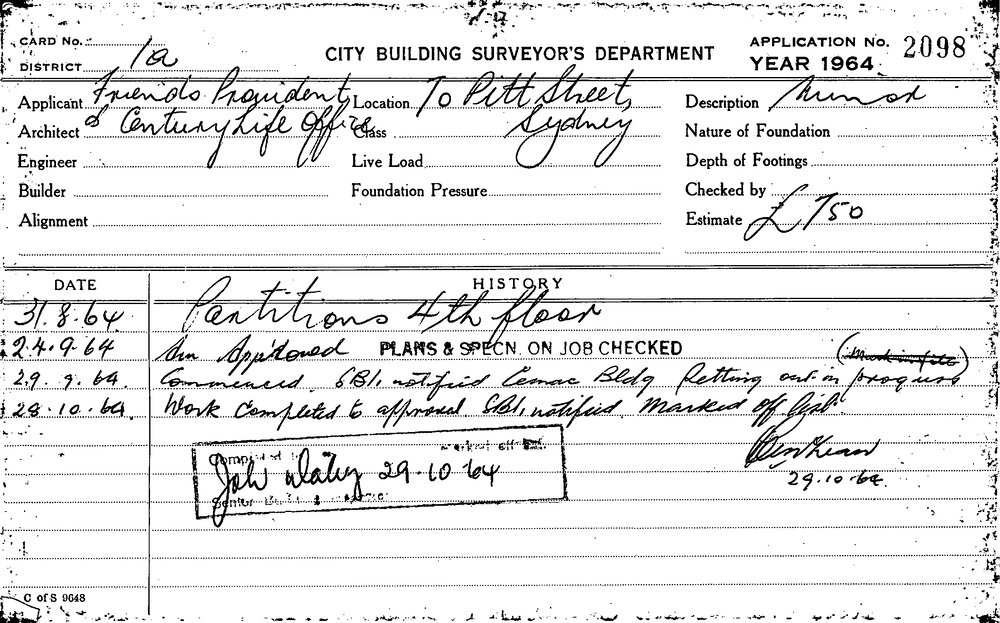 CARD No.
DISTRICT 1a
CITY BUILDING SURVEYOR'S DEPARTMENT
APPLICATION No. 2098
YEAR 1964
Applicant Friends Provident
Location 70 Pitt Street,
Description Minor
Architect & Century Life Office
Class Sydney
Nature of Foundation
Engineer
Live Load
Depth of Footings
Builder
Foundation Pressure
Checked by
Alignment
Estimate £750
DATE HISTORY
31.8.64 Partitions 4th floor
24.9.64 Approved PLANS & SPECN. ON JOB CHECKED
29.9.64 Commenced. SBI. notified Cemac Bldg fitting out in progress
28.10.64 Work completed to approval SBI. notified. Marked off list
29.10.64
Completed marked off
29-10-64
Senior
C of S 9648